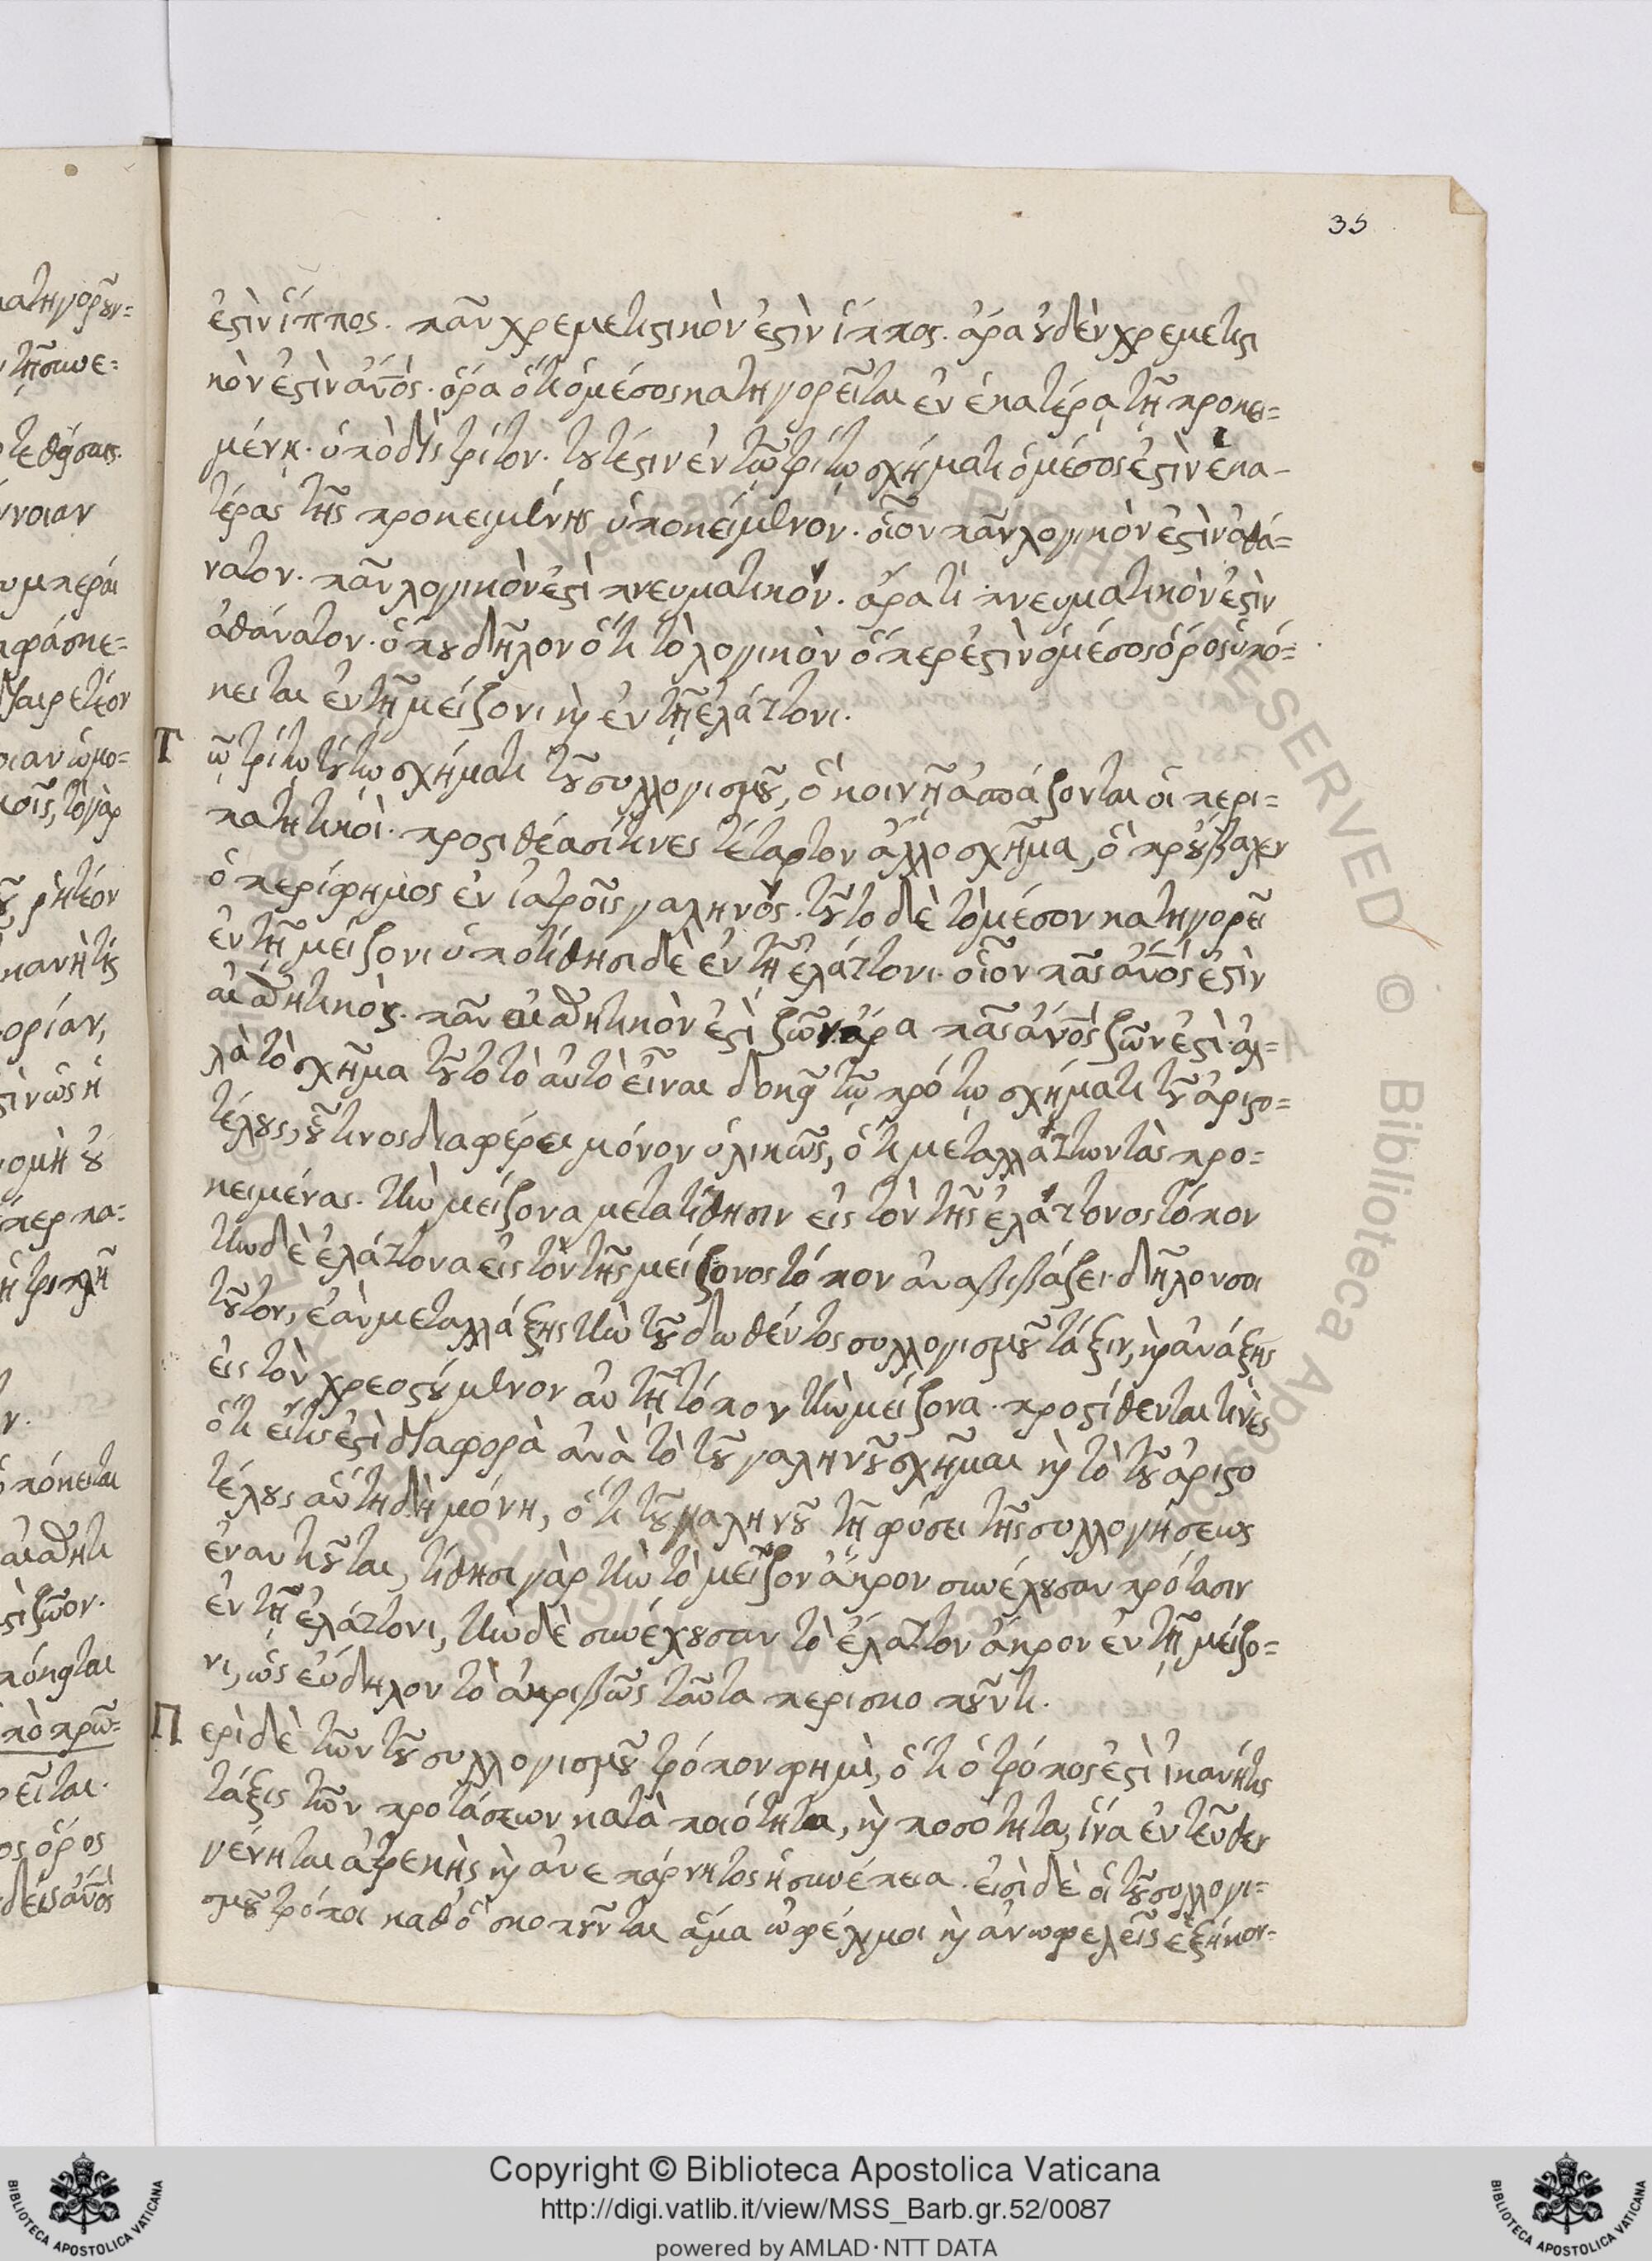 35
ἐστὶν ἵππος. πᾶν χρεμετιστικὸν ἐστὶν ἵππος. ἄρα οὐδὲν χρεμετιστι
κὸν ἐστὶν ἄνος. ὅρα ὅτι ὁ μέσος κατηγορεῖται ἐν ἑκατέρᾳ τῇ προκει=
μένῃ. ὑπὸ δὶς τρίτον. τουτέστιν ἐν τῷ τρίτῳ σχήματι ὁ μέσος ἐστὶν ἑκα-
τέρας τῆς προκειμένης ὑποκείμενον. οἷον πᾶν λογικὸν ἐστὶν ἀθά=
νατον. πᾶν λογικὸν ἐστὶ πνευματικόν. ἄρα τὶ πνευματικὸν ἐστὶν
ἀθάνατον. ὅπου δῆλον ὅτι τὸ λογικὸν ὅπερ ἐστὶν ὁ μέσος ὅρος ὑπό=
κειται ἐν τῇ μείζονι καὶ ἐν τῇ ἐλάττονι.
Τῷ τρίτῳ τούτῳ σχήματι τοῦ συλλογισμοῦ, ὃ κοινῇ ἀσπάζονται οἱ περι=
πατητικοί. προστιθέασί τινες τέταρτον ἄλλο σχῆμα, ὃ προὔβαλεν
ὁ περίφημος ἐν ἰατροῖς γαληνός. τοῦτο δὲ τὸ μέσον κατηγορεῖ
ἐν τῇ μείζονι ὑποτίθησι δὲ ἐν τῇ ἐλάττονι. οἷον πᾶς ἄνος ἐστὶν
αἰσθητικός. πᾶν αἰσθητικὸν ἐστὶ ζῶον. ἄρα πᾶς ἄνος ζῶον ἐστὶ. ἀλ=
λὰ τὸ σχῆμα τοῦτο τὸ αὐτὸ εἶναι δοκεῖ τῷ πρότῳ σχήματι τοῦ ἀριστο=
τέλους, οὗτινος διαφέρει μόνον ὑλικῶς, ὅτι μεταλλάττων τὰς προ=
κειμένας. τὴν μείζονα μετατίθησιν εἰς τὸν τῆς ἐλάττονος τόπον
τὴν δὲ ἐλάττονα εἰς τὸν τῆς μείζονος τόπον ἀναβιβάζει. δῆλον σοι
τοῦτον, ἐὰν μεταλλάξῃς τὴν τοῦ δωθέντος συλλογισμοῦ τάξιν, καὶ ἀνάξῃς
εἰς τὸν χρεοστούμενον αὐτῇ τόπον τὴν μείζονα. προστίθενται τινὲς
ὅτι εἴτις ἐστὶ διαφορὰ ἀνὰ τὸ τοῦ γαληνοῦ σχῆμαι καὶ τὸ τοῦ ἀριστο
τέλους αὕτη δὴ μόνη, ὅτι τοῦ γαληνοῦ τῇ φύσει τῆς συλλογήσεως
ἐναντιοῦται, τίθησι γὰρ τὴν τὸ μεῖζον ἄκρον συνέχουσαν πρότασιν
ἐν τῇ ἐλάττονι, τὴν δὲ συνέχουσαν τὸ ἔλαττον ἄκρον ἐν τῇ μείζο=
νι, ὡς εὔδηλον τὸ ἀκριβῶς ταῦτα περισκοποῦντι.
Περὶ δὲ τῶν τοῦ συλλογισμοῦ τρόπον φημὶ, ὅτι ὁ τρόπος ἐστὶ ἱκανή τις
τάξις τῶν προτάσεων κατὰ ποιότητα, καὶ ποσότητα, ἵνα ἐντεῦθεν
γένηται ἀτρεκὴς καὶ ἀνεπάρνητος ἡ συνέπεια. εἰσὶ δὲ οἱ τοῦ συλλογι=
σμοῦ τρόποι καθὸ σκοποῦνται ἅμα ὠφέλιμοι καὶ ἀνωφελεῖς ἐξήκον=
Copyright © Biblioteca Apostolica Vaticana
http://digi.vatlib.it/view/MSS_Barb.gr.52/0087
powered by AMLAD·NTT DATA